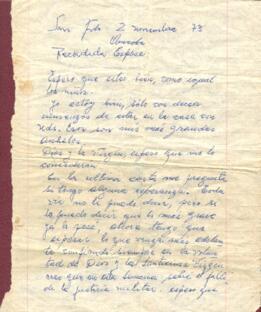 San Fdo 2 noviembre 73
Recordada Esposa
Espero que estes bien, como igual
los niños.
Yo estoy bien, sólo con deseos
inmensos de estar en la casa con
Uds. Esos son mis más grandes
anhelos.
Dios y la Virgen, espero que me lo
concederán.
En la última carta me preguntas
si tengo alguna esperanza.
no te puedo decir, pero si
te puedo decir que lo más grave
ya pasó, ahora tengo que
esperar lo que venga más adelante
confiando siempre en la volun
tad de Dios y la Santísima Virgen
creo que en esta semana, sale el fallo
de la justicia militar. espero que